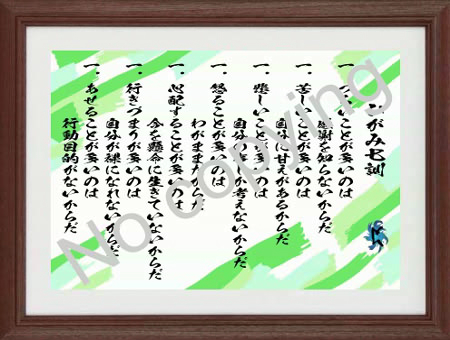 七訓
一、つらいことが多いのは
感謝を知らないからだ
一、苦しいことが多いのは
自分に甘えがあるからだ
一、悲しいことが多いのは
自分の事しか考えないからだ
一、怒ることが多いのは
わがままだからだ
一、心配することが多いのは
今を懸命に生きていないからだ
一、行きづまりが多いのは
自分が裸になれないからだ
一、あせることが多いのは
行動目的がないからだ
No copying